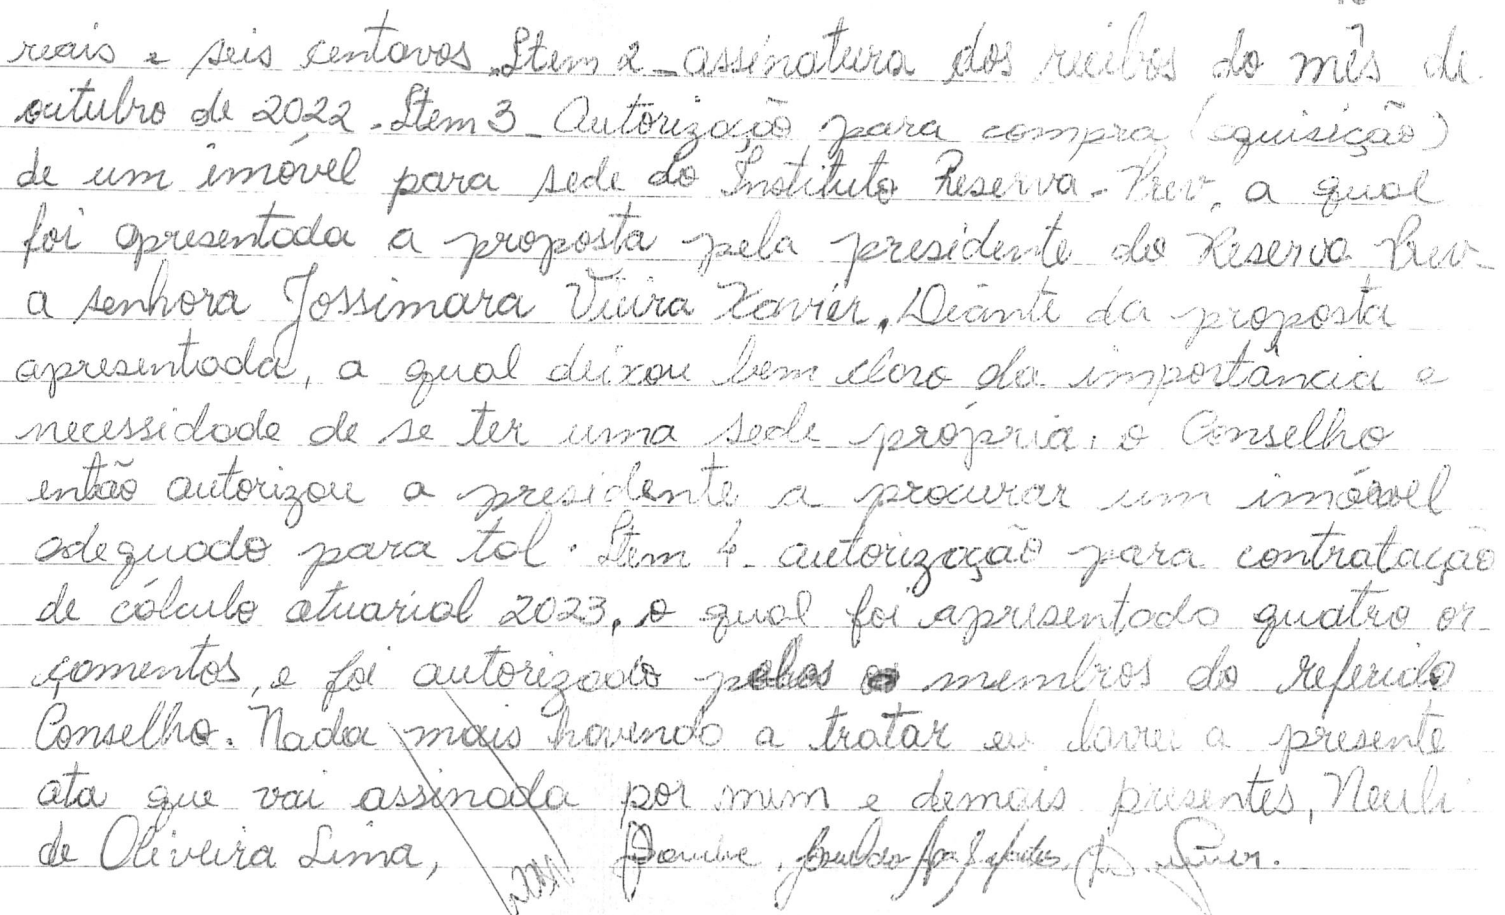 reais e seis centavos. Item 2 - assinatura dos recibos do mês de
outubro de 2022. Item 3 - Autorização para compra (aquisição)
de um imóvel para sede do Instituto Reserva-Prev, a qual
foi apresentada a proposta pela presidente do Reserva Prev-
a senhora Jossimara Vieira Xavier. Diante da proposta
apresentada, a qual deixou bem claro da importância e
necessidade de se ter uma sede própria, o Conselho
então autorizou a presidente a procurar um imóvel
adequado para tal. Item 4 - autorização para contratação
de cálculo atuarial 2023, o qual foi apresentado quatro or-
çamentos, e foi autorizado pelos membros do referido
Conselho. Nada mais havendo a tratar eu lavrei a presente
ata que vai assinada por mim e demais presentes, Neuli
de Oliveira Lima,